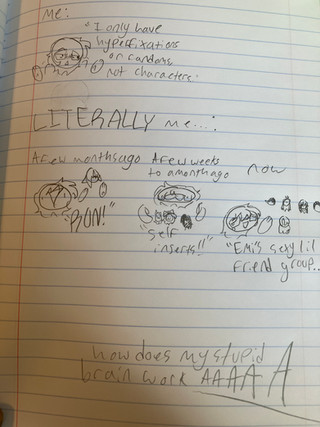 Me:
"I only have
hyperfixations
on fandoms
not characters."
LITERALLY me...:
A few months ago
"BON!"
A few weeks
to a month ago
"self
inserts!!"
now
"Emi's sexy lil
friend group..
how does my stupid
brain work AAAAA